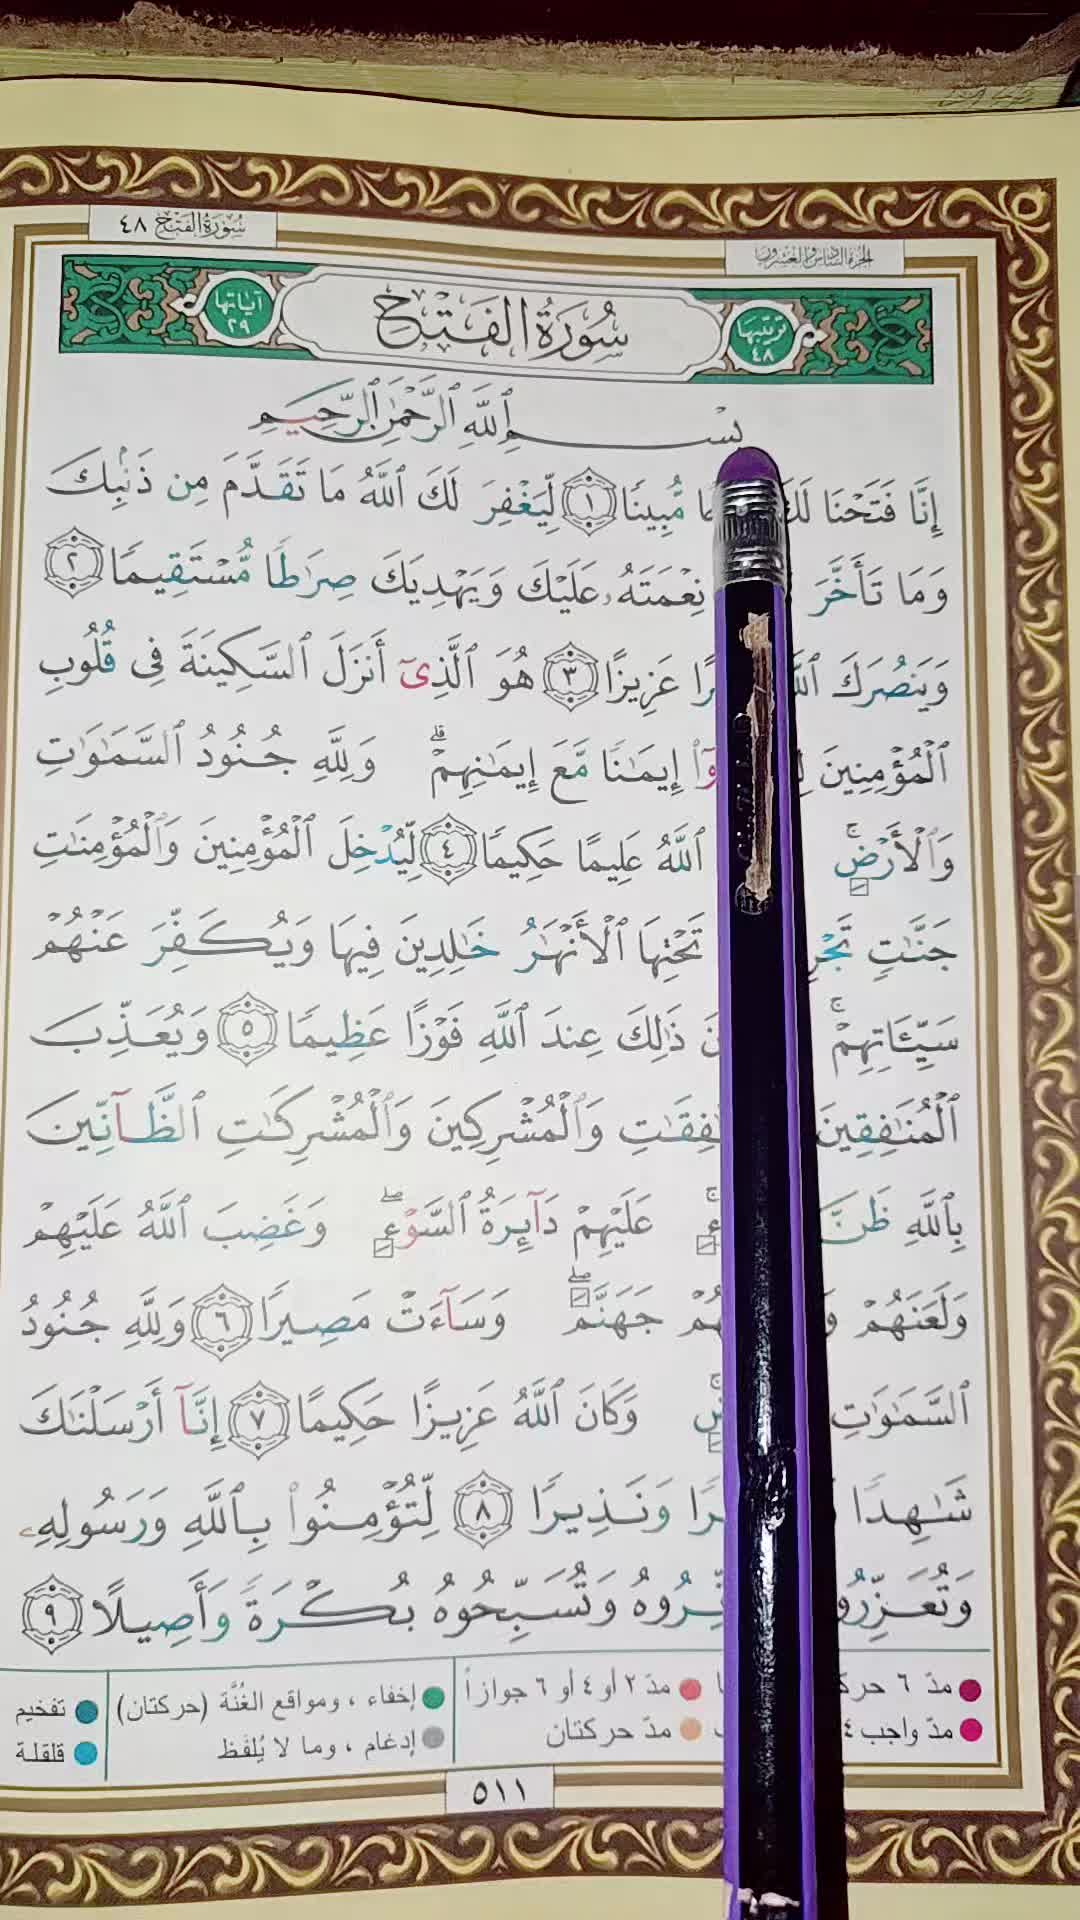 سُورَةُ الفَتْحِ ٤٨
الجزء السادس والعشرون
ترتيبها ٤٨
سُورَةُ الفَتْحِ
آياتها ٢٩
بِسْمِ ٱللَّهِ ٱلرَّحْمَٰنِ ٱلرَّحِيمِ
إِنَّا فَتَحْنَا مُّبِينًا ١ لِّيَغْفِرَ لَكَ ٱللَّهُ مَا تَقَدَّمَ مِن ذَنۢبِكَ
وَمَا تَأَخَّرَ نِعْمَتَهُۥ عَلَيْكَ وَيَهْدِيَكَ صِرَٰطًا مُّسْتَقِيمًا ٢
وَيَنصُرَكَ عَزِيزًا ٣ هُوَ ٱلَّذِىٓ أَنزَلَ ٱلسَّكِينَةَ فِى قُلُوبِ
ٱلْمُؤْمِنِينَ إِيمَٰنًا مَّعَ إِيمَٰنِهِمْ ۗ وَلِلَّهِ جُنُودُ ٱلسَّمَٰوَٰتِ
وَٱلْأَرْضِ ۚ ٱللَّهُ عَلِيمًا حَكِيمًا ٤ لِّيُدْخِلَ ٱلْمُؤْمِنِينَ وَٱلْمُؤْمِنَٰتِ
جَنَّٰتٍ تَحْتِهَا ٱلْأَنْهَٰرُ خَٰلِدِينَ فِيهَا وَيُكَفِّرَ عَنْهُمْ
سَيِّـَٔاتِهِمْ ۚ ذَٰلِكَ عِندَ ٱللَّهِ فَوْزًا عَظِيمًا ٥ وَيُعَذِّبَ
ٱلْمُنَٰفِقِينَ وَٱلْمُشْرِكِينَ وَٱلْمُشْرِكَٰتِ ٱلظَّآنِّينَ
بِٱللَّهِ ظَنَّ عَلَيْهِمْ دَآئِرَةُ ٱلسَّوْءِ ۖ وَغَضِبَ ٱللَّهُ عَلَيْهِمْ
وَلَعَنَهُمْ جَهَنَّمَ ۖ وَسَآءَتْ مَصِيرًا ٦ وَلِلَّهِ جُنُودُ
ٱلسَّمَٰوَٰتِ وَكَانَ ٱللَّهُ عَزِيزًا حَكِيمًا ٧ إِنَّآ أَرْسَلْنَٰكَ
شَٰهِدًا وَنَذِيرًا ٨ لِّتُؤْمِنُوا۟ بِٱللَّهِ وَرَسُولِهِۦ
وَتُسَبِّحُوهُ بُكْرَةً وَأَصِيلًا ٩
مدّ ٦
مدّ ٢ أو ٤ أو ٦ جوازاً
إخفاء ، ومواقع الغُنَّة (حركتان)
تفخيم
مدّ واجب ٤
مدّ حركتان
إدغام ، وما لا يُلفَظ
قلقلة
٥١١